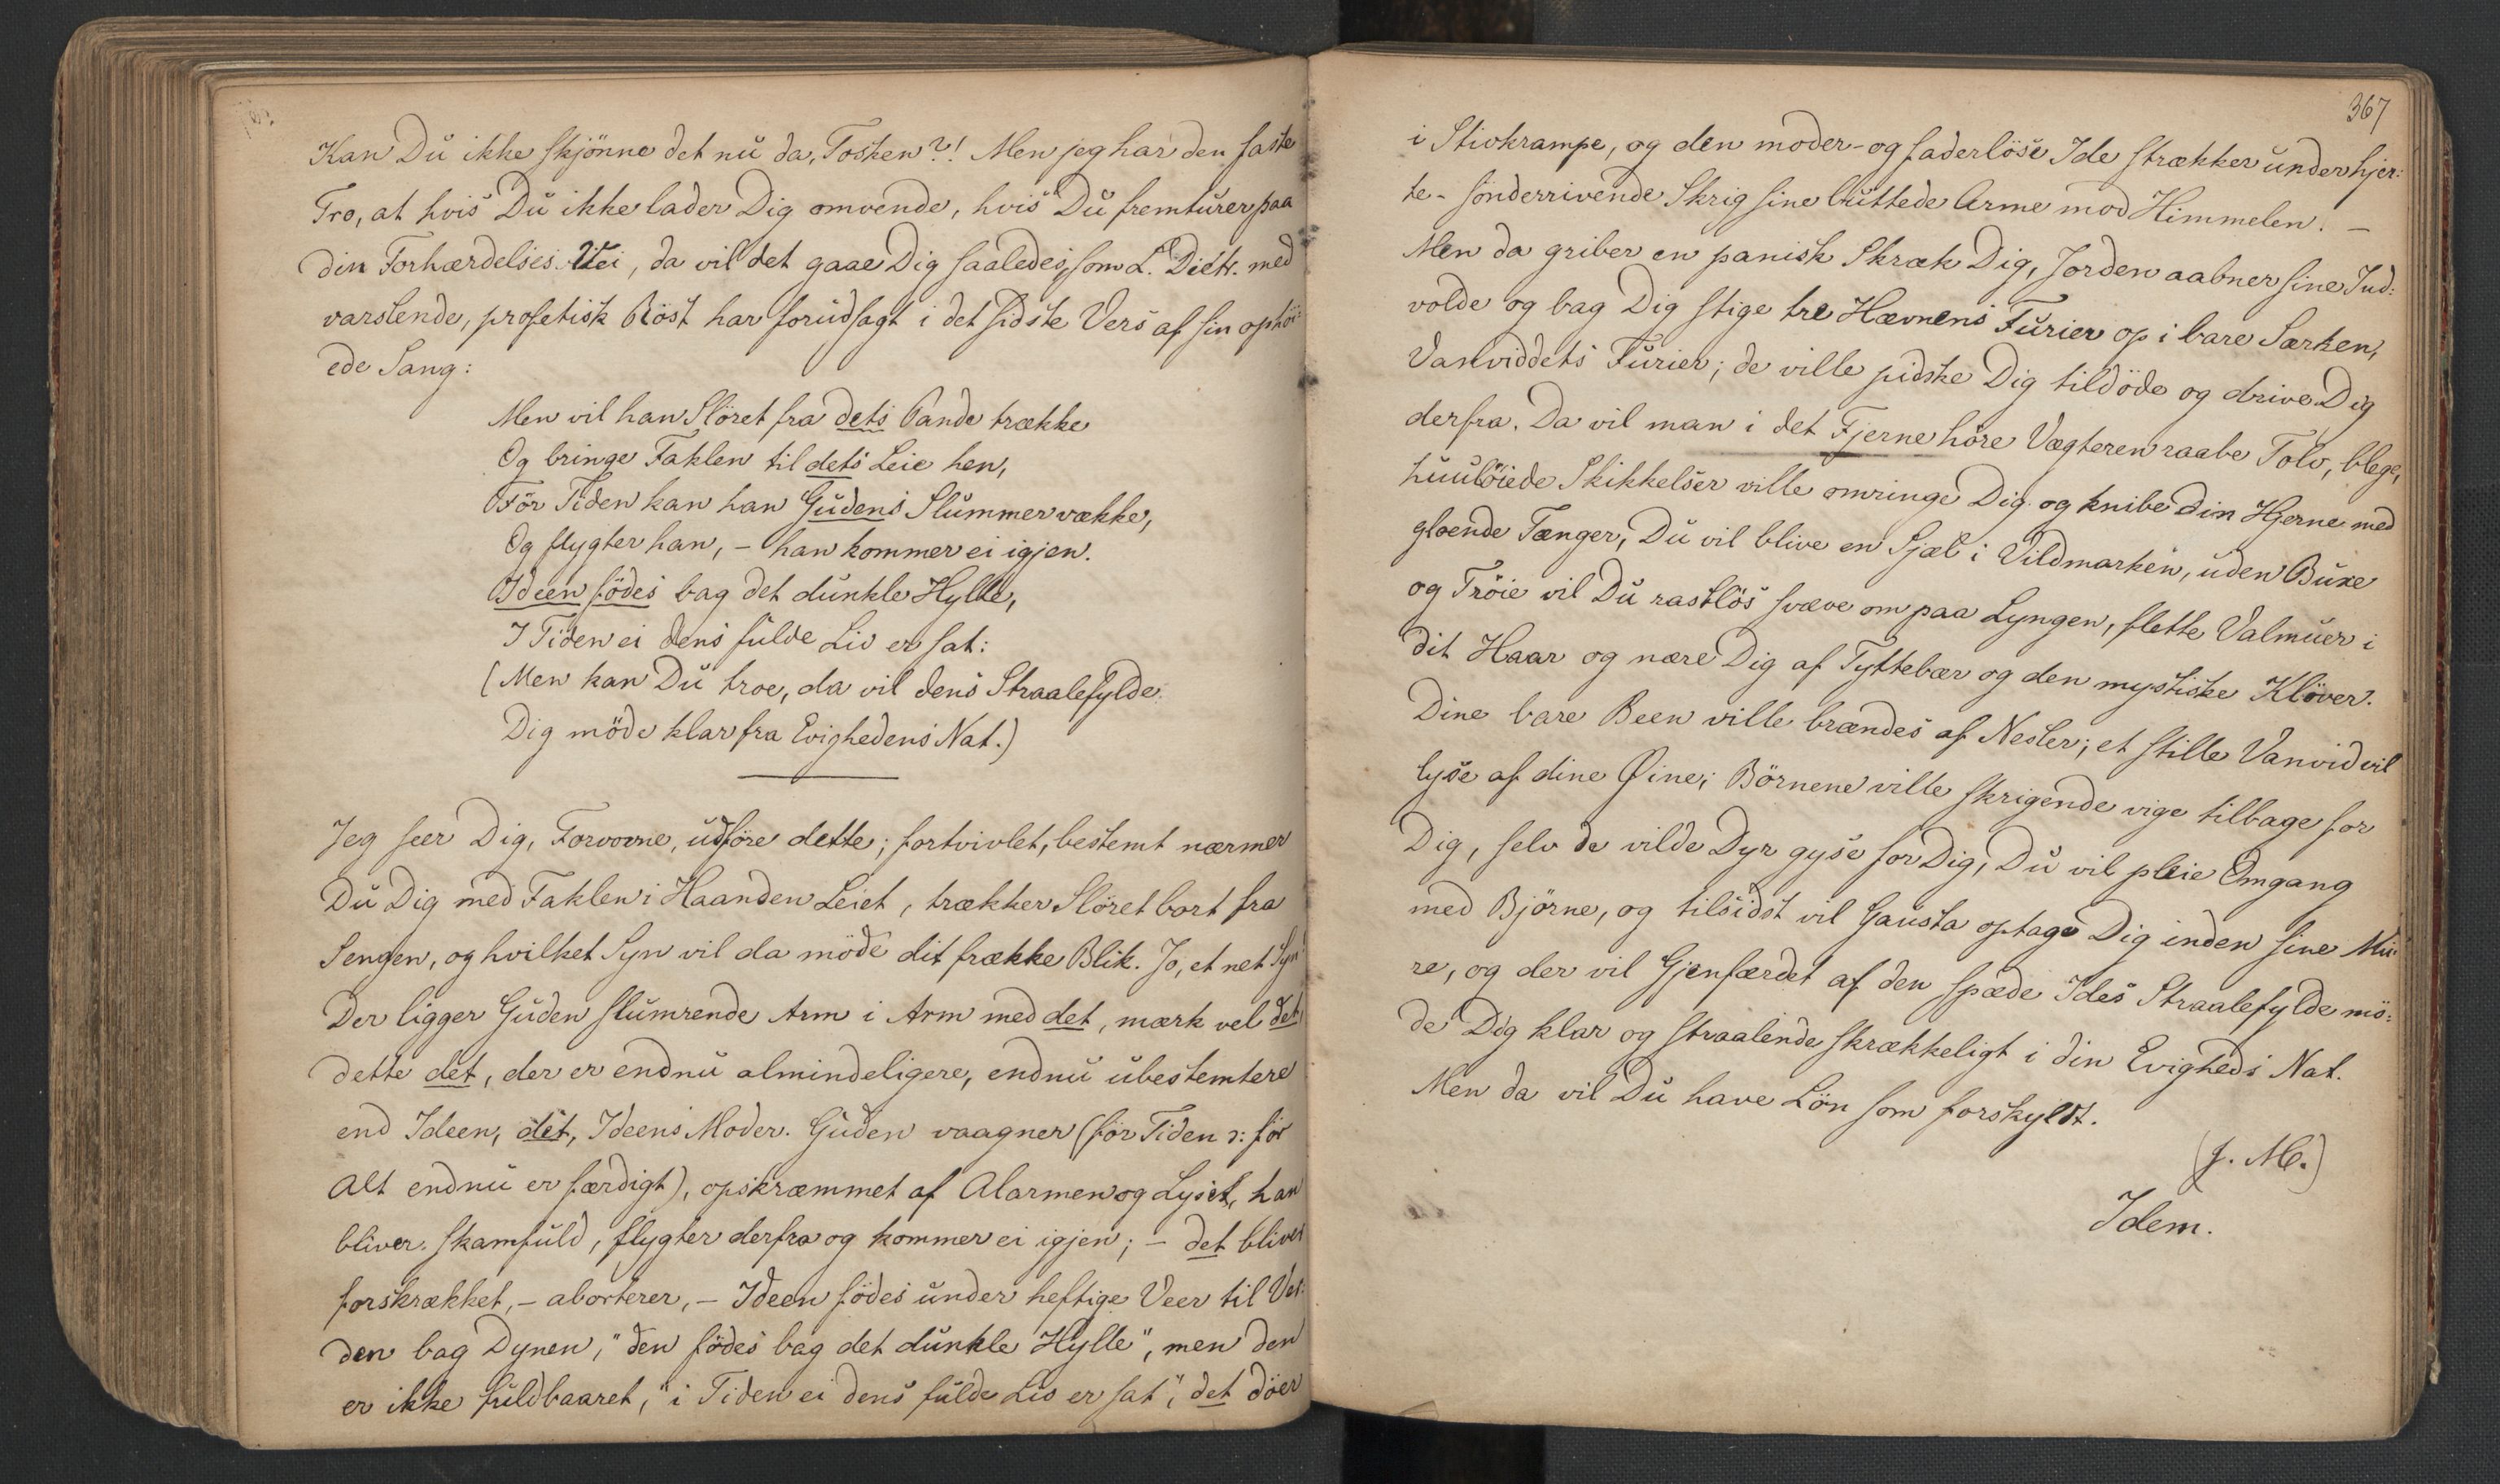 Kan Du ikke skjönne det nu da, Tosken?! Men jeg har den faste
Tro, at hvis Du ikke lader Dig omvende, hvis Du fremturer paa
din Forhærdelses Vei, da vil det gaae Dig saaledes, som L. Dietr. med
varslende, profetisk Röst har forudsagt i det sidste Vers af sin ophöi:
ede Sang:
Men vil han Slöret fra dets Pande trække
Og bringe Faklen til dets Leie hen,
För Tiden kan han Gudens Slummer vække,
Og flygter han, – han kommer ei igjen.
Ideen födes bag det dunkle Hylle,
I Tiden ei dens fulde Liv er sat:
(Men kan Du troe, da vil dens Straalefylde
Dig möde klar fra Evighedens Nat.)
Jeg seer Dig, Forvovne, udföre dette; fortvivlet, bestemt nærmer
Du Dig med Faklen i Haanden Leiet, trækker Slöret bort fra
Sengen, og hvilket Syn vil da möde dit frække Blik. Jo, et net Syn!
Der ligger Guden slumrende Arm i Arm med det, mærk vel det,
dette det, der er endnu almindeligere, endnu ubestemtere
end Ideen, det, Ideens Moder. Guden vaagner (för Tiden ɔ: för
Alt endnu er færdigt), opskræmmet af Alarmen og Lyset, han
bliver skamfuld, flygter derfra og kommer ei igjen; – det bliver
forskrækket, – aborterer, – Ideen födes under heftige Veer til Ver:
den bag Dynen, "den födes bag det dunkle Hylle", men den
er ikke fuldbaaret, "i Tiden ei dens fulde Liv er sat", det döer
367
i Stivkrampe, og den moder- og faderlöse Ide strækker under hjer:
te-sönderrivende Skrig sine buttede Arme mod Himmelen. –
Men da griber en panisk Skræk Dig, Jorden aabner sine Ind:
volde og bag Dig stige tre Hævnens Furier op i bare Særken,
Vanviddets Furier; de ville pidske Dig tildöde og drive Dig
derfra. Da vil man i det Fjerne höre Vægteren raabe Tolv, blege,
huulöiede Skikkelser ville omringe Dig og knibe din Hjerne med
gloende Tænger, Du vil blive en Sjæl i Vildmarken, uden Buxe
og Tröie vil Du rastlös svæve om paa Lyngen, flette Valmuer i
dit Haar og nære Dig af Tyttebær og den mystiske Klöver.
Dine bare Been ville brændes af Nesler; et stille Vanvid vil
lyse af dine Øine; Börnene ville skrigende vige tilbage for
Dig, selv de vilde Dyr gyse for Dig, Du vil pleie Omgang
med Björne, og tilsidst vil Gausta optage Dig inden sine Mu:
re, og der vil Gjenfærdet af den spæde Ides Straalefylde mö:
de Dig klar og straalende skrækkeligt i din Evigheds Nat.
Men da vil Du have Lön som forskyldt.
(J. M.)
Idem.